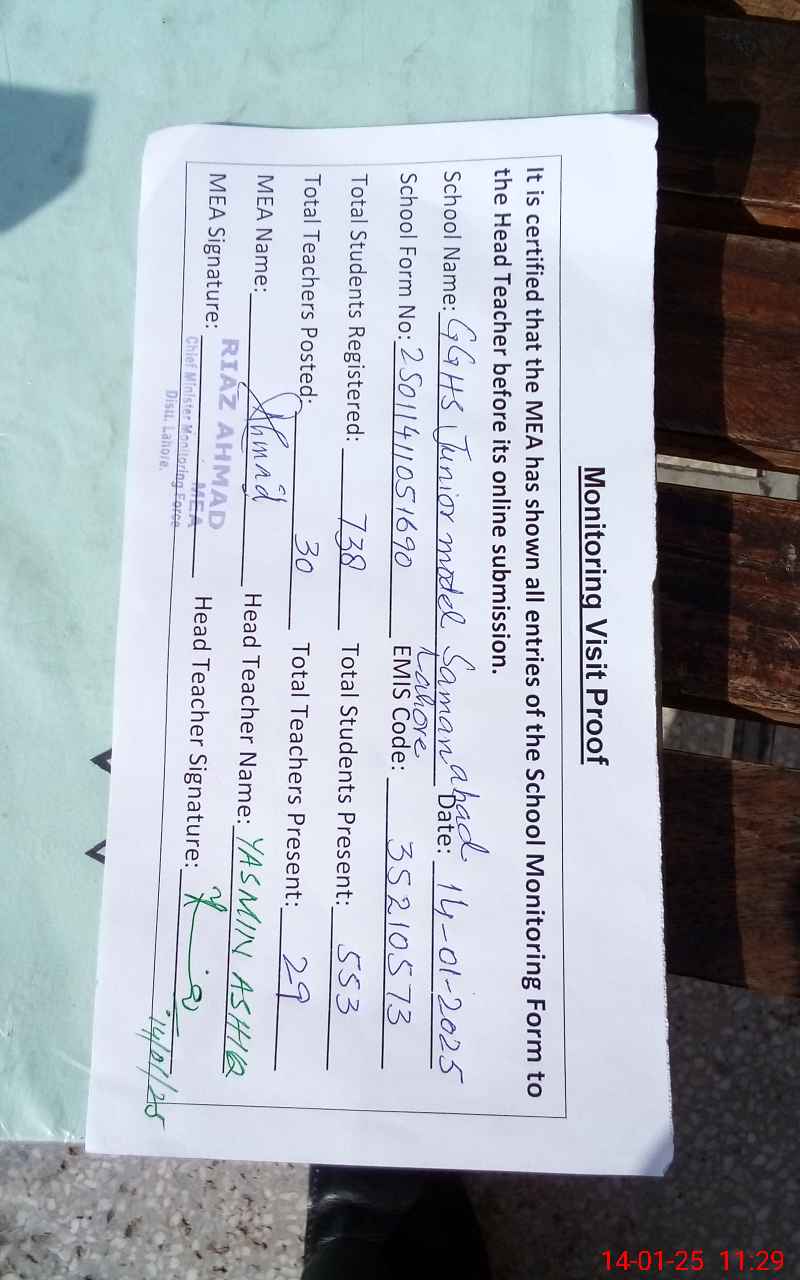 Monitoring Visit Proof
It is certified that the MEA has shown all entries of the School Monitoring Form to
the Head Teacher before its online submission.
School Name: GGHS Junior model Samanabad Lahore Date: 14-01-2025
School Form No: 25011411051690 EMIS Code: 35210573
Total Students Registered: 738 Total Students Present: 553
Total Teachers Posted: 30 Total Teachers Present: 29
MEA Name: Ahmad Head Teacher Name: YASMIN ASHIQ
MEA Signature: Head Teacher Signature:
RIAZ AHMAD
MEA
Chief Minister Monitoring Force
Distt. Lahore.
14/01/25
14-01-25 11:29